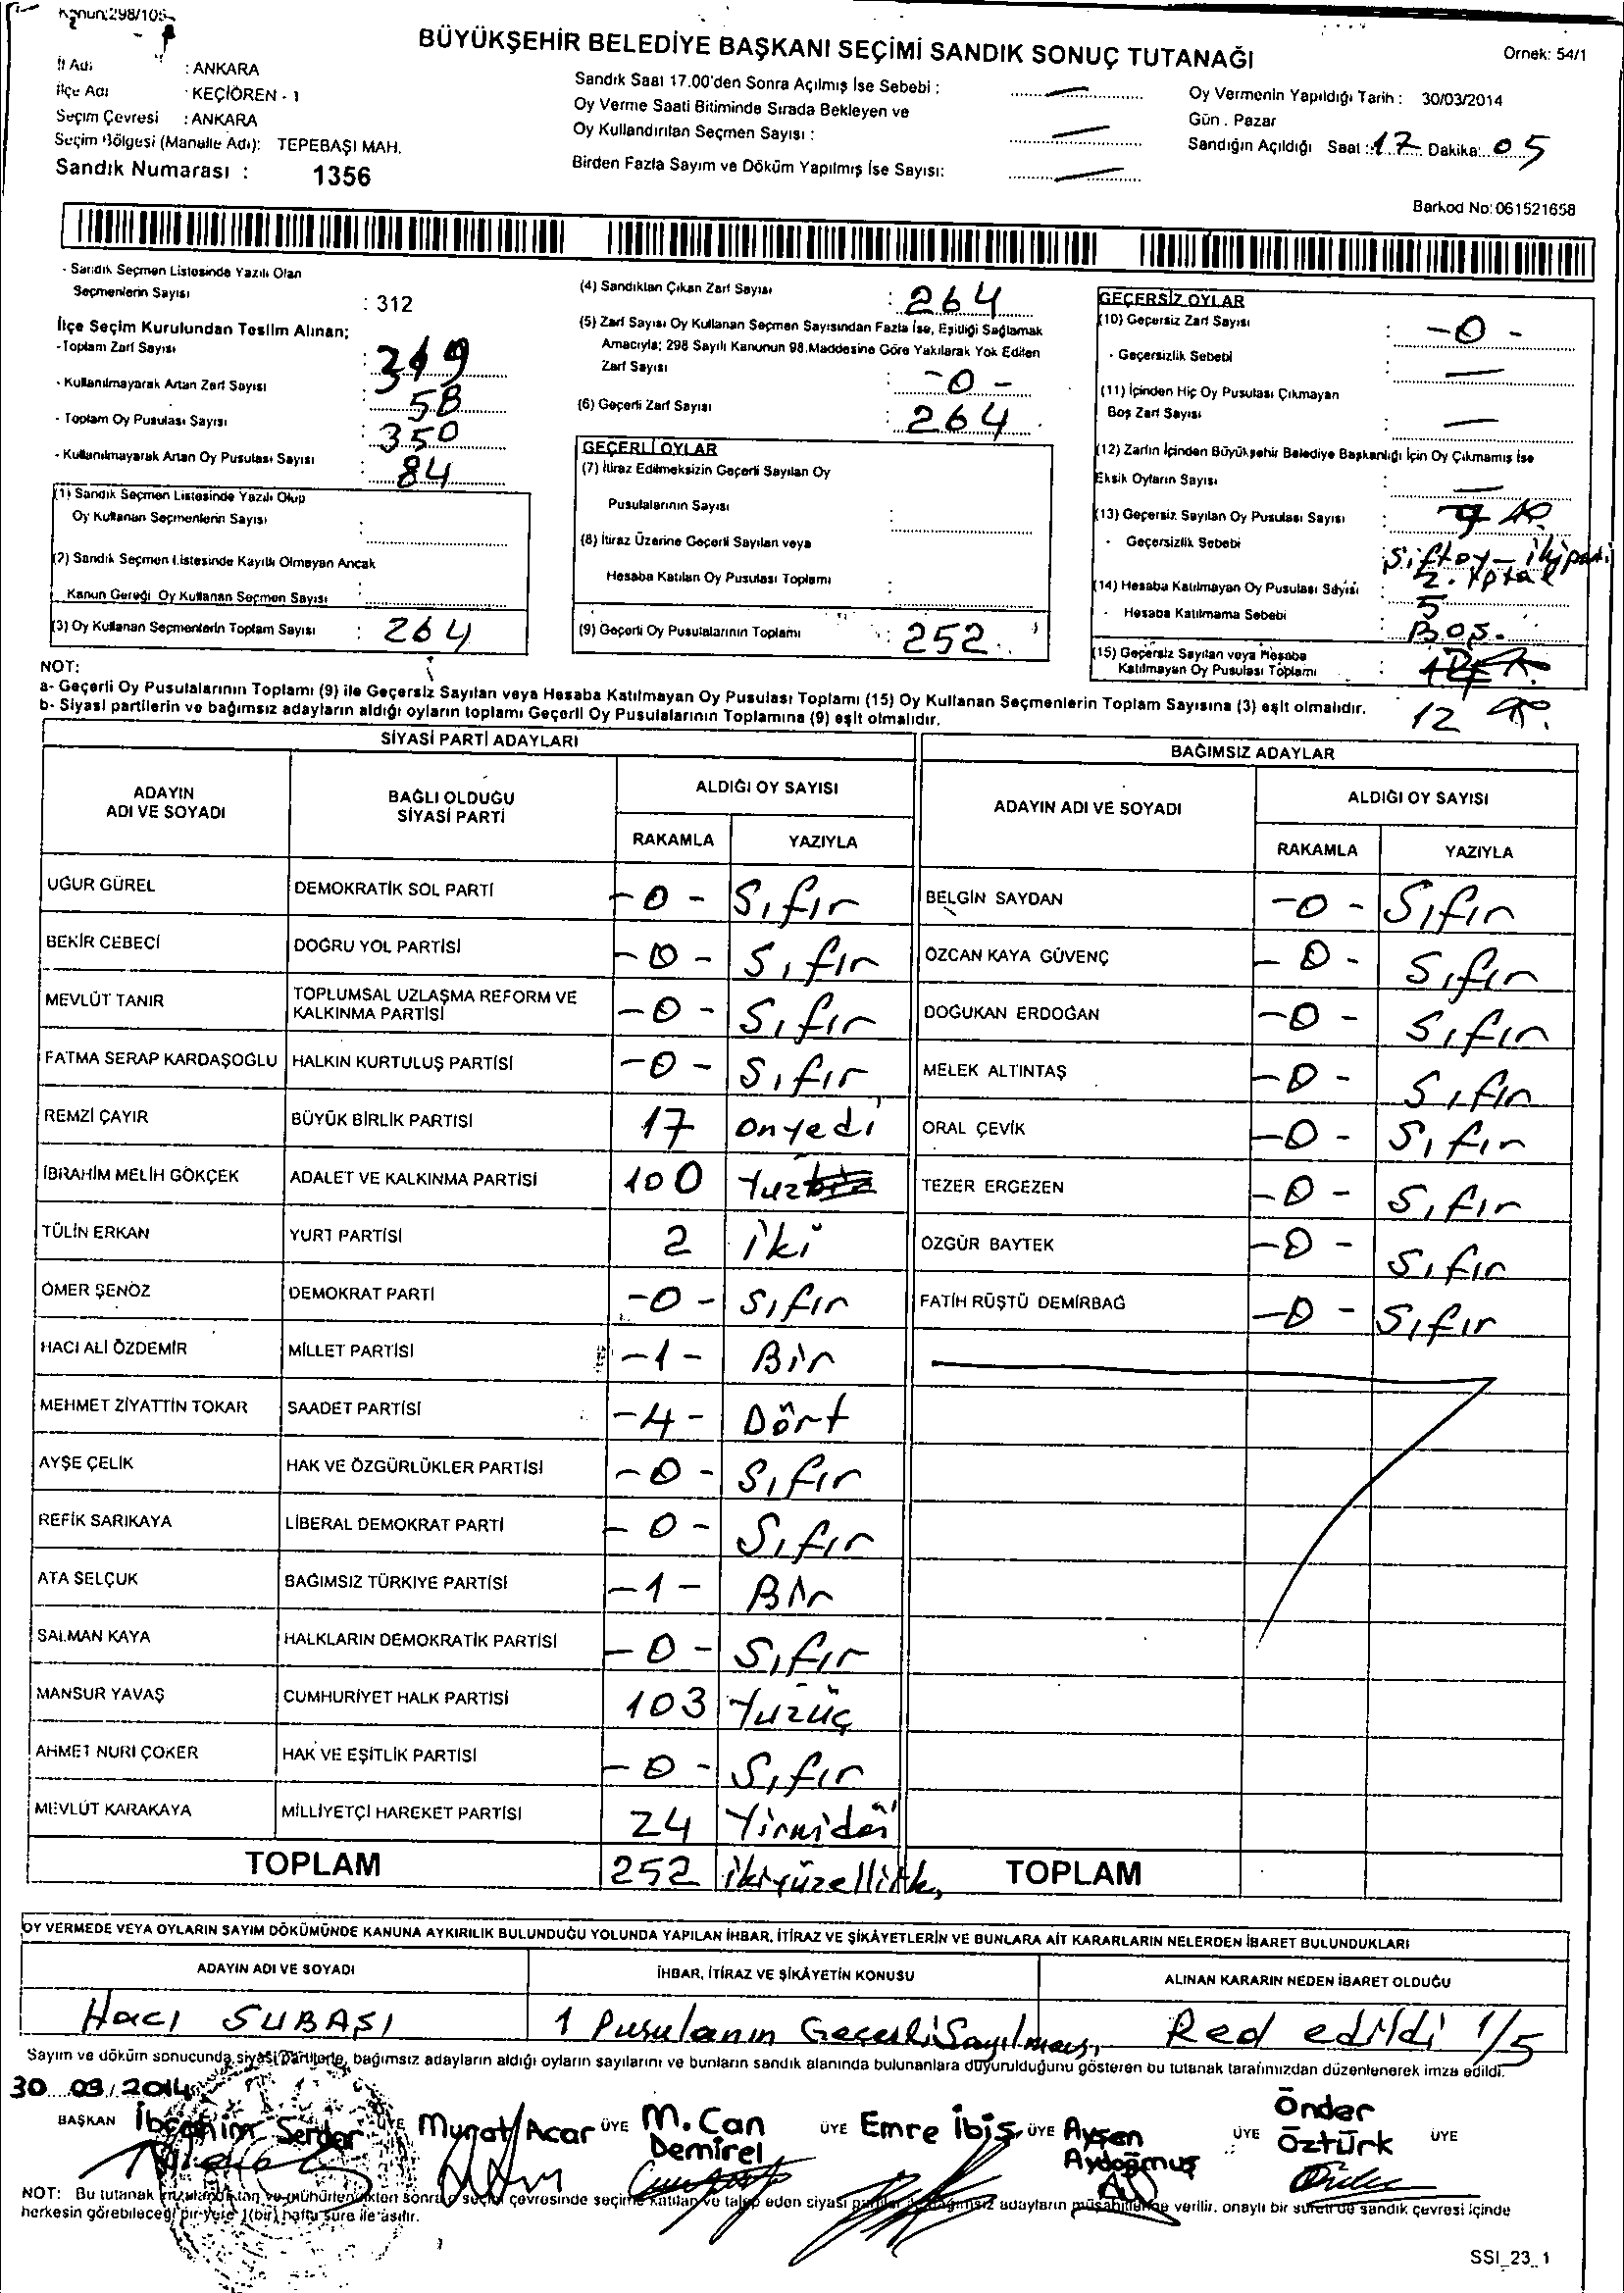 Kanun:298/105
BÜYÜKŞEHİR BELEDİYE BAŞKANI SEÇİMİ SANDIK SONUÇ TUTANAĞI
Ornek: 54/1
İl Adı : ANKARA
İlçe Adı : KEÇİÖREN - 1
Seçim Çevresi : ANKARA
Seçim Bölgesi (Mahalle Adı): TEPEBAŞI MAH.
Sandık Numarası : 1356
Sandık Saat 17.00'den Sonra Açılmış İse Sebebi : —
Oy Verme Saati Bitiminde Sırada Bekleyen ve
Oy Kullandırılan Seçmen Sayısı : —
Birden Fazla Sayım ve Döküm Yapılmış İse Sayısı: —
Oy Vermenin Yapıldığı Tarih : 30/03/2014
Gün . Pazar
Sandığın Açıldığı Saat : 17 Dakika: 05
Barkod No: 061521658
- Sandık Seçmen Listesinde Yazılı Olan
Seçmenlerin Sayısı : 312
İlçe Seçim Kurulundan Teslim Alınan;
-Toplam Zarf Sayısı : 319
- Kullanılmayarak Artan Zarf Sayısı : 58
- Toplam Oy Pusulası Sayısı : 350
- Kullanılmayarak Artan Oy Pusulası Sayısı : 84
(1) Sandık Seçmen Listesinde Yazılı Olup
Oy Kullanan Seçmenlerin Sayısı :
(2) Sandık Seçmen Listesinde Kayıtlı Olmayan Ancak
Kanun Gereği Oy Kullanan Seçmen Sayısı :
(3) Oy Kullanan Seçmenlerin Toplam Sayısı : 264
(4) Sandıktan Çıkan Zarf Sayısı : 264
(5) Zarf Sayısı Oy Kullanan Seçmen Sayısından Fazla İse, Eşitliği Sağlamak
Amacıyla; 298 Sayılı Kanunun 98.Maddesine Göre Yakılarak Yok Edilen
Zarf Sayısı : -0-
(6) Geçerli Zarf Sayısı : 264
GEÇERLİ OYLAR
(7) İtiraz Edilmeksizin Geçerli Sayılan Oy
Pusulalarının Sayısı :
(8) İtiraz Üzerine Geçerli Sayılan veya
Hesaba Katılan Oy Pusulası Toplamı :
(9) Geçerli Oy Pusulalarının Toplamı : 252
GEÇERSİZ OYLAR
(10) Geçersiz Zarf Sayısı : -0-
- Geçersizlik Sebebi : —
(11) İçinden Hiç Oy Pusulası Çıkmayan
Boş Zarf Sayısı : —
(12) Zarfın İçinden Büyükşehir Belediye Başkanlığı İçin Oy Çıkmamış İse
Eksik Oyların Sayısı : —
(13) Geçersiz Sayılan Oy Pusulası Sayısı :
- Geçersizlik Sebebi :
(14) Hesaba Katılmayan Oy Pusulası Sayısı : 5
- Hesaba Katılmama Sebebi : Boş.
(15) Geçersiz Sayılan veya Hesaba
Katılmayan Oy Pusulası Toplamı :
12
NOT:
a- Geçerli Oy Pusulalarının Toplamı (9) ile Geçersiz Sayılan veya Hesaba Katılmayan Oy Pusulası Toplamı (15) Oy Kullanan Seçmenlerin Toplam Sayısına (3) eşit olmalıdır.
b- Siyasi partilerin ve bağımsız adayların aldığı oyların toplamı Geçerli Oy Pusulalarının Toplamına (9) eşit olmalıdır.
SİYASİ PARTİ ADAYLARI
BAĞIMSIZ ADAYLAR
ADAYIN ADI VE SOYADI
BAĞLI OLDUĞU SİYASİ PARTİ
ALDIĞI OY SAYISI
RAKAMLA YAZIYLA
ADAYIN ADI VE SOYADI
ALDIĞI OY SAYISI
RAKAMLA YAZIYLA
UĞUR GÜREL DEMOKRATİK SOL PARTİ -0- Sıfır BELGİN SAYDAN -0- Sıfır
BEKİR CEBECİ DOĞRU YOL PARTİSİ -0- Sıfır ÖZCAN KAYA GÜVENÇ -0- Sıfır
MEVLÜT TANIR TOPLUMSAL UZLAŞMA REFORM VE KALKINMA PARTİSİ -0- Sıfır DOĞUKAN ERDOĞAN -0- Sıfır
FATMA SERAP KARDAŞOĞLU HALKIN KURTULUŞ PARTİSİ -0- Sıfır MELEK ALTINTAŞ -0- Sıfır
REMZİ ÇAYIR BÜYÜK BİRLİK PARTİSİ 17 onyedi ORAL ÇEVİK -0- Sıfır
İBRAHİM MELİH GÖKÇEK ADALET VE KALKINMA PARTİSİ 100 Yüz TEZER ERGEZEN -0- Sıfır
TÜLİN ERKAN YURT PARTİSİ 2 iki ÖZGÜR BAYTEK -0- Sıfır
ÖMER ŞENÖZ DEMOKRAT PARTİ -0- Sıfır FATİH RÜŞTÜ DEMİRBAĞ -0- Sıfır
HACI ALİ ÖZDEMİR MİLLET PARTİSİ -1- Bir
MEHMET ZİYATTİN TOKAR SAADET PARTİSİ -4- Dört
AYŞE ÇELİK HAK VE ÖZGÜRLÜKLER PARTİSİ -0- Sıfır
REFİK SARIKAYA LİBERAL DEMOKRAT PARTİ -0- Sıfır
ATA SELÇUK BAĞIMSIZ TÜRKİYE PARTİSİ -1- Bir
SALMAN KAYA HALKLARIN DEMOKRATİK PARTİSİ -0- Sıfır
MANSUR YAVAŞ CUMHURİYET HALK PARTİSİ 103 Yüzüç
AHMET NURİ ÇOKER HAK VE EŞİTLİK PARTİSİ -0- Sıfır
MEVLÜT KARAKAYA MİLLİYETÇİ HAREKET PARTİSİ 24
TOPLAM 252 TOPLAM
OY VERMEDE VEYA OYLARIN SAYIM DÖKÜMÜNDE KANUNA AYKIRILIK BULUNDUĞU YOLUNDA YAPILAN İHBAR, İTİRAZ VE ŞİKÂYETLERİN VE BUNLARA AİT KARARLARIN NELERDEN İBARET BULUNDUKLARI
ADAYIN ADI VE SOYADI İHBAR, İTİRAZ VE ŞİKÂYETİN KONUSU ALINAN KARARIN NEDEN İBARET OLDUĞU
Hacı SUBAŞI 1 Pusulanın Geçerli Sayılması, Red edildi 1/5
Sayım ve döküm sonucunda siyasi partilerle, bağımsız adayların aldığı oyların sayılarını ve bunların sandık alanında bulunanlara duyurulduğunu gösteren bu tutanak tarafımızdan düzenlenerek imza edildi.
30.03/2014
BAŞKAN İbrahim Serdar ÜYE Murat Acar ÜYE M. Can Demirel ÜYE Emre İbiş ÜYE Ayşen Aydoğmuş ÜYE Önder Öztürk ÜYE
NOT: Bu tutanak imzalandıktan ve mühürlendikten sonra o seçim çevresinde seçime katılan ve talep eden siyasi partiler ile bağımsız adayların müşahitlerine verilir. onaylı bir sureti de sandık çevresi içinde
herkesin görebileceği bir yere 1(bir) hafta süre ile asılır.
SSI_23_1